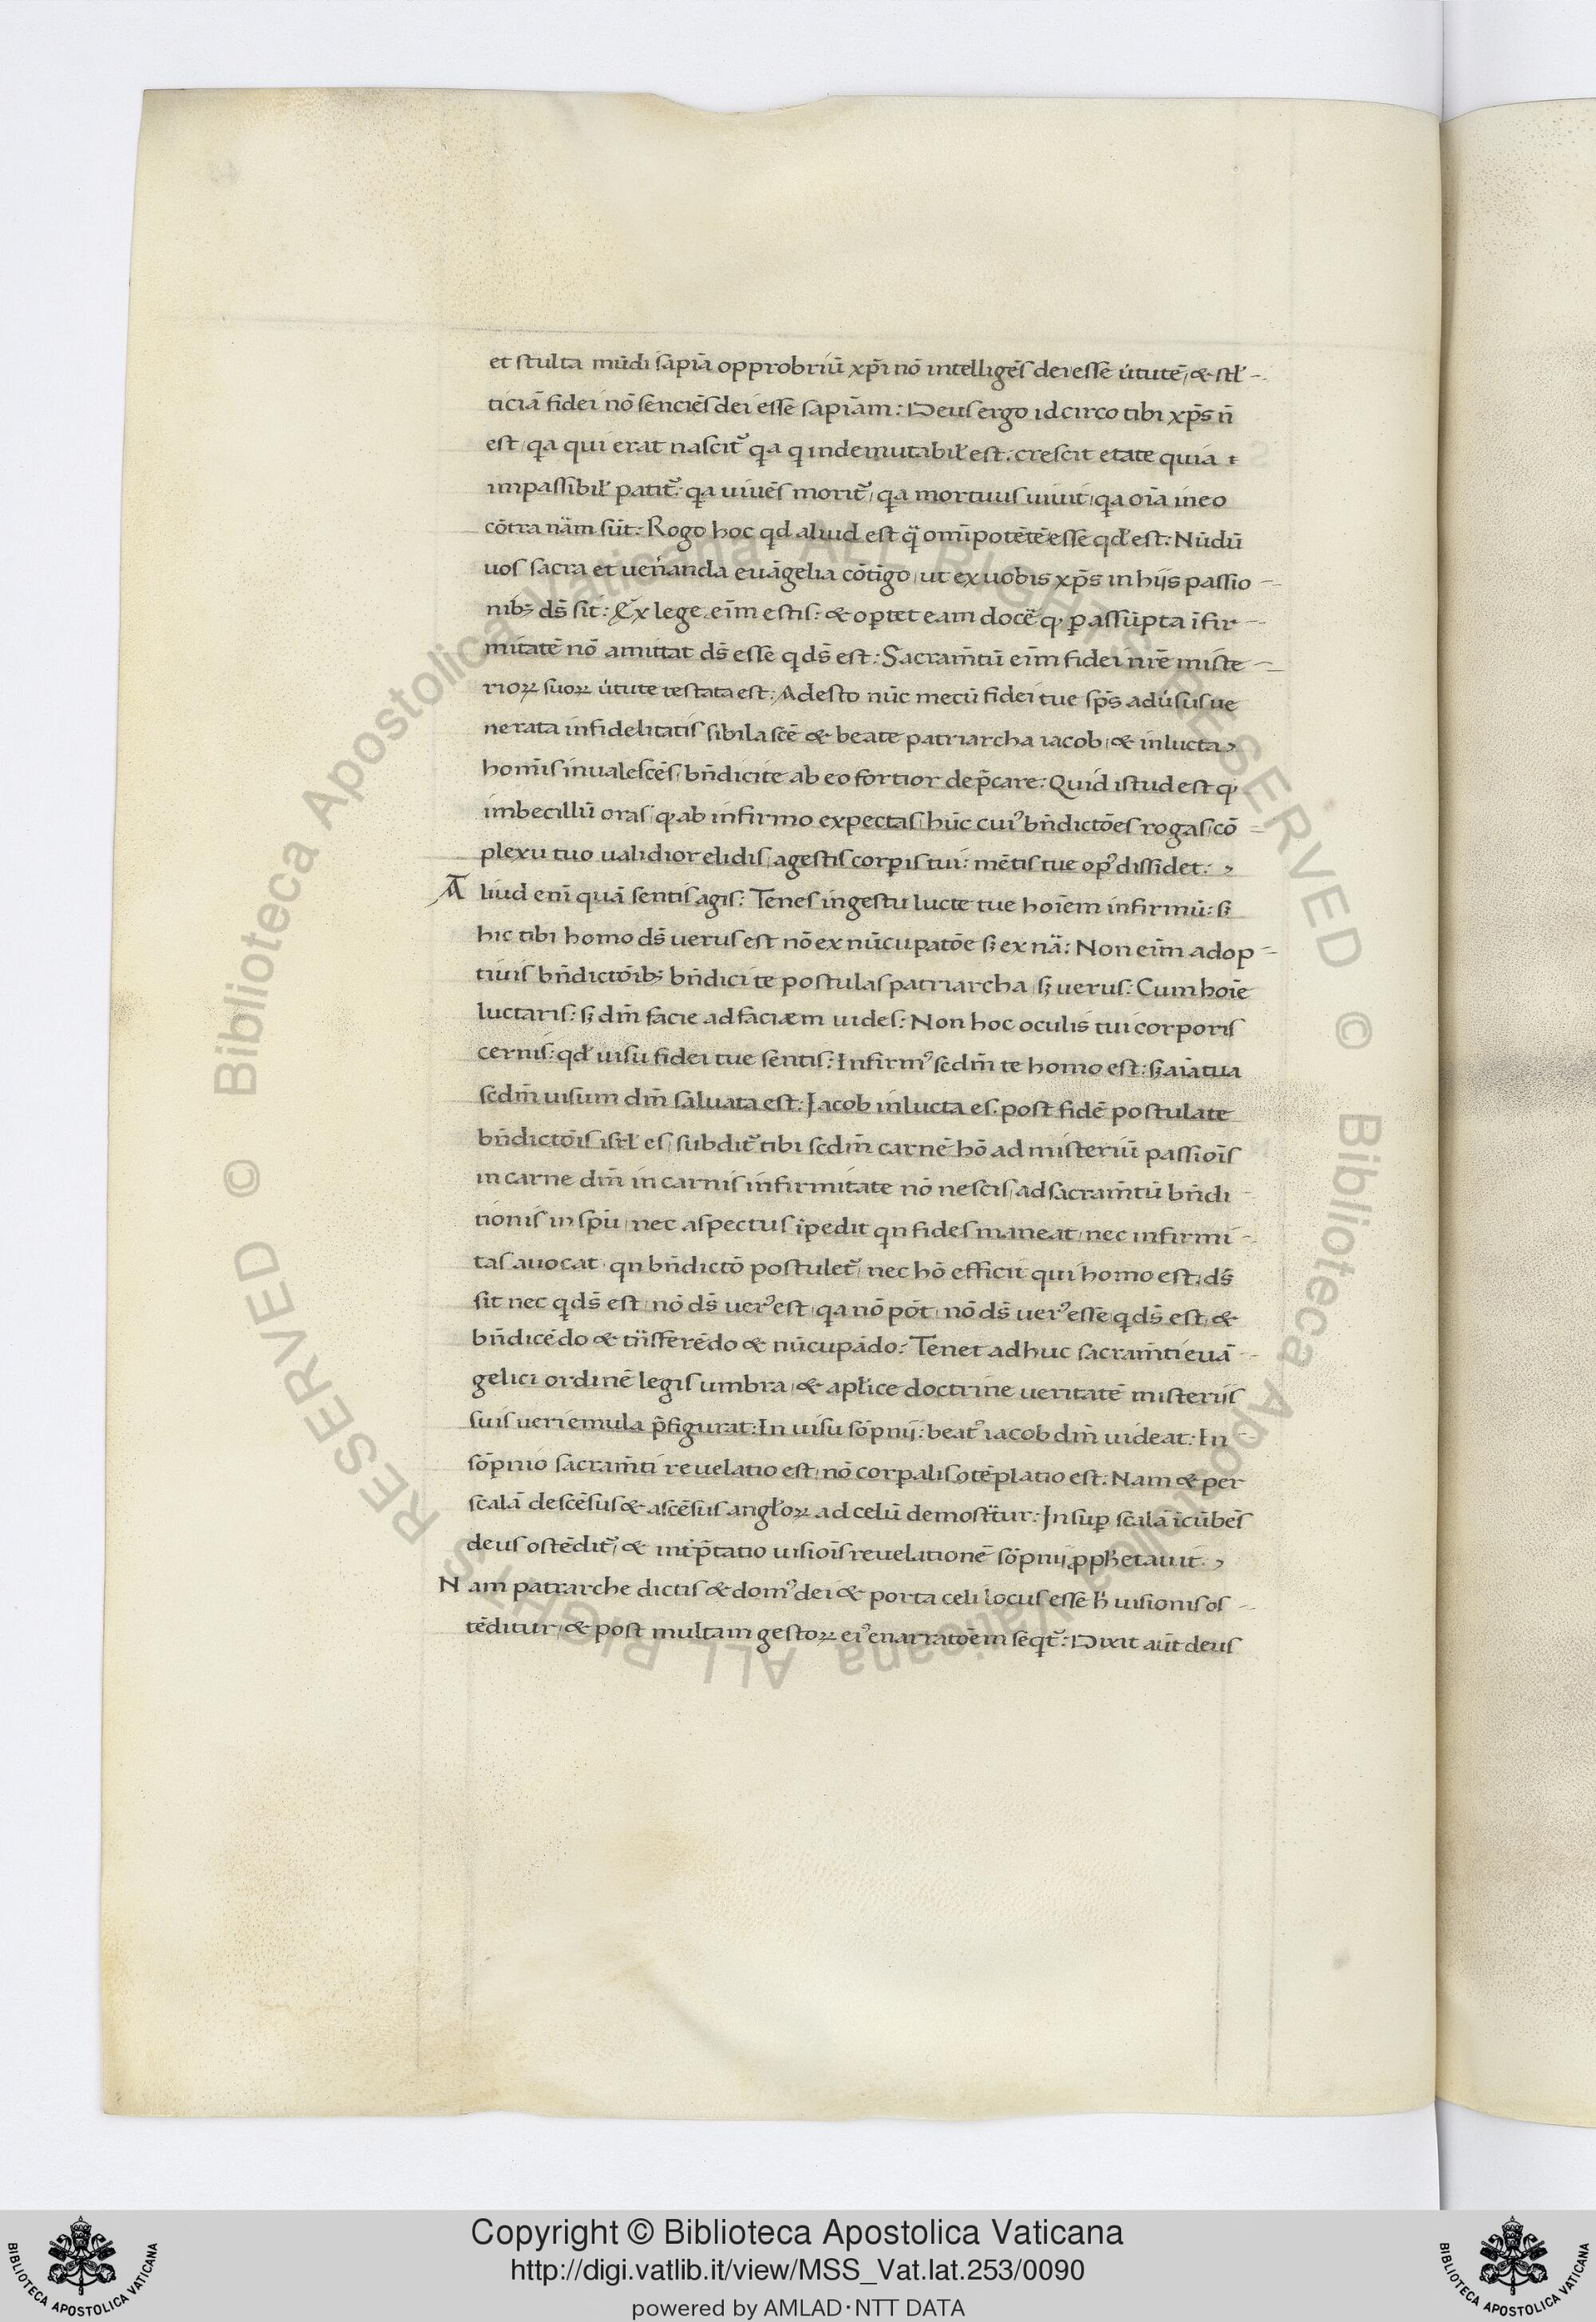 et stulta mūdi sapiā opprobriū xp̄i nō intelligēs dei esse útutē, & stł-
ticiā fidei nō senciēs dei esse sapiām: Deus ergo idcirco tibi xp̄s ñ
est, qa qui erat nascit᷑ qa q indemutabił est. crescit etate quia
impassibił patit᷑: qa uiuēs morit᷑, qa mortuus uiuit, qa oīa in eo
cōtra nām sūt: Rogo hoc qd aliud est q̄ omīpotētē esse qđ est: Nūdū
uos sacra et uen̄anda euāgelia cōtīgo, ut ex uobis xp̄s in hijs passio-
nibꝫ ds̄ sit: Ex lege eīm estis: & oꝑtet eam docē̄ ꝙ ꝑ assūpta īfir-
mitatē nō amittat ds̄ esse q ds̄ est: Sacram̄tū eīm fidei nr̄e miste-
rioꝝ suoꝝ útute testata est: Adesto nūc mecū fidei tue sp̄s adúsus ue
nerata infidelitatis sibila sc̄ē & beate patriarcha iacob, & in lucta,
hom̄is inualescēs, bn̄dici te ab eo fortior dep̄care: Quid istud est ꝙ
imbecillū oras, ꝙ ab infirmo expectas, hūc cuiꝰ bn̄dictōes rogas, cō
plexu tuo ualidior elidis, a gestis corꝑis tui: mētis tue opꝰ dissidet:
Aliud enī quā sentis agis: Tenes in gestu lucte tue hoīem infirmū: sꝫ
hic tibi homo ds̄ uerus est nō ex nūcupatōe sꝫ ex nā: Non eīm adop-
tiuis bn̄dictōibꝫ bn̄dici te postulas patriarcha, sꝫ uerus: Cum hoīe
luctaris: sꝫ dm̄ facie ad faciæm uides: Non hoc oculis tui corporis
cernis: qđ uisu fidei tue sentis: Infirmꝰ scdm̄ te homo est: sꝫ aīa tua
scdm̄ uisum dm̄ saluata est: Jacob in lucta es. post fidē postulate
bn̄dictōis isrł es, subdit᷑ tibi scdm̄ carnē hō ad misteriū passiōis
in carne dm̄ in carnis infirmitate nō nescis, ad sacram̄tū bn̄di-
tionis in sp̄u, nec aspectus īpedit qn fides maneat, nec infirmi-
tas auocat, qn bn̄dictō postulet᷑, nec hō efficit qui homo est, ds̄
sit nec q ds̄ est, nō ds̄ uerꝰ est, qa nō pōt, nō ds̄ uerꝰ esse, q ds̄ est, &
bn̄dicēdo & trn̄sferēdo & nūcupādo: Tenet adhuc sacram̄ti euā-
gelici ordinē legis umbra, & apłice doctrine ueritatē misterijs
suis ueri emula p̄figurat: In uisu sōpnij: beatꝰ iacob dm̄ uideat: In-
sōpnio sacram̄ti reuelatio est, nō corꝑalis ɔtēplatio est: Nam & per
scalā descēsus & ascēsus angłoꝝ ad celū demost̄tur: In suꝑ scalā īcūbēs
deus ostēdit᷑, & int̄p̄tatio uisiōis reuelationē sōpnij ꝓphetauit:
Nam patrarche dictis & domꝰ dei & porta celi locus esse h̄ uisionis os-
tēditur, & post multam gestoꝝ eiꝰ enarratōem seqt᷑: Dixit aūt deus
Copyright © Biblioteca Apostolica Vaticana
http://digi.vatlib.it/view/MSS_Vat.lat.253/0090
powered by AMLAD·NTT DATA